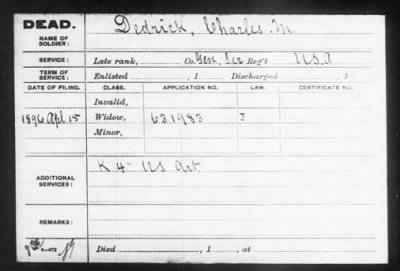 DEAD.
NAME OF SOLDIER: Dedrick, Charles M
SERVICE: Late rank, Co. Gene, Ser Reg't U.S.A
TERM OF SERVICE: Enlisted , 1 Discharged , 1
DATE OF FILING. CLASS. APPLICATION NO. LAW. CERTIFICATE NO.
Invalid,
1896 Apl 15 Widow, 631983 J
Minor,
ADDITIONAL SERVICES: K 4" US Art
REMARKS:
Died , 1 , at